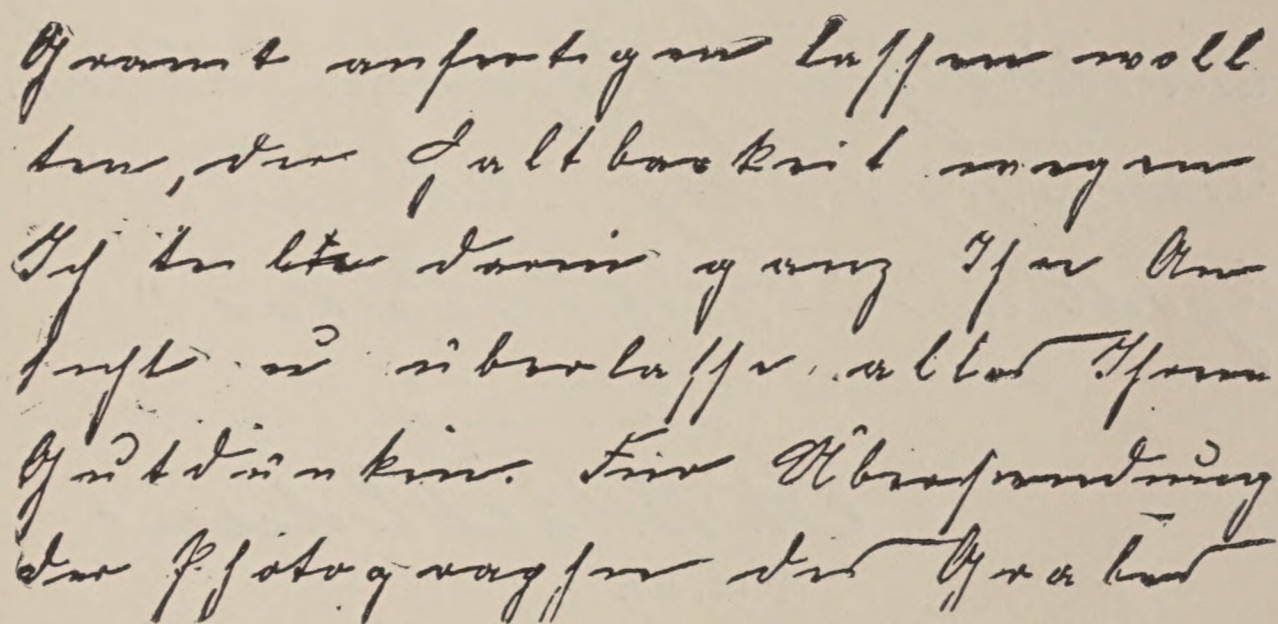 Granit anfertigen lassen woll
ten, der Haltbarkeit wegen
Ich teilte darin ganz Ihre An
sicht u überlasse alles Ihrem
Gutdünken. Für Übersendung
der Photographie des Grabes